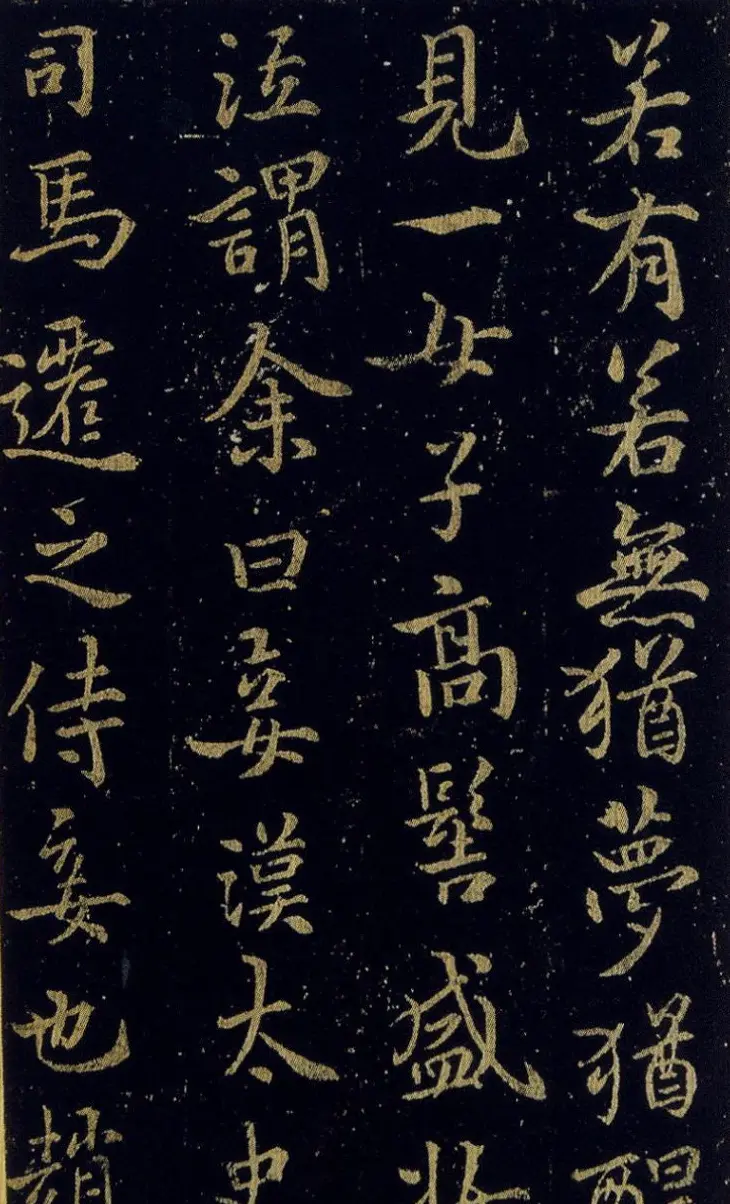 若有若無猶夢猶醒
見一女子高髻盛
泣謂余曰妾漢太史
司馬遷之侍妾也趙